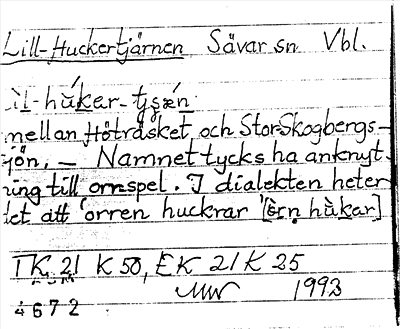 Lill-Huckertjärnen Sävar sn Vbl.
mellan Hötrasket och Stor-Skogbergs-
jön. — Namnet tycks ha anknyt-
ning till orrspel. I dialekten heter
det att 'orren huckrar' [òrn hùkar]
TK 21 K 50, EK 21 K 25
1993
4672